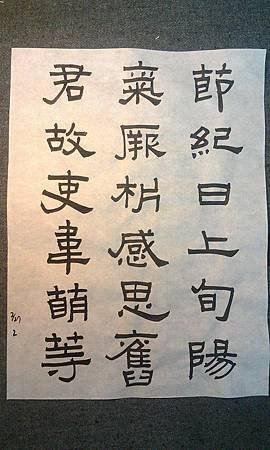 節紀日上旬陽
氣厥析感思舊
君故吏韋萌等